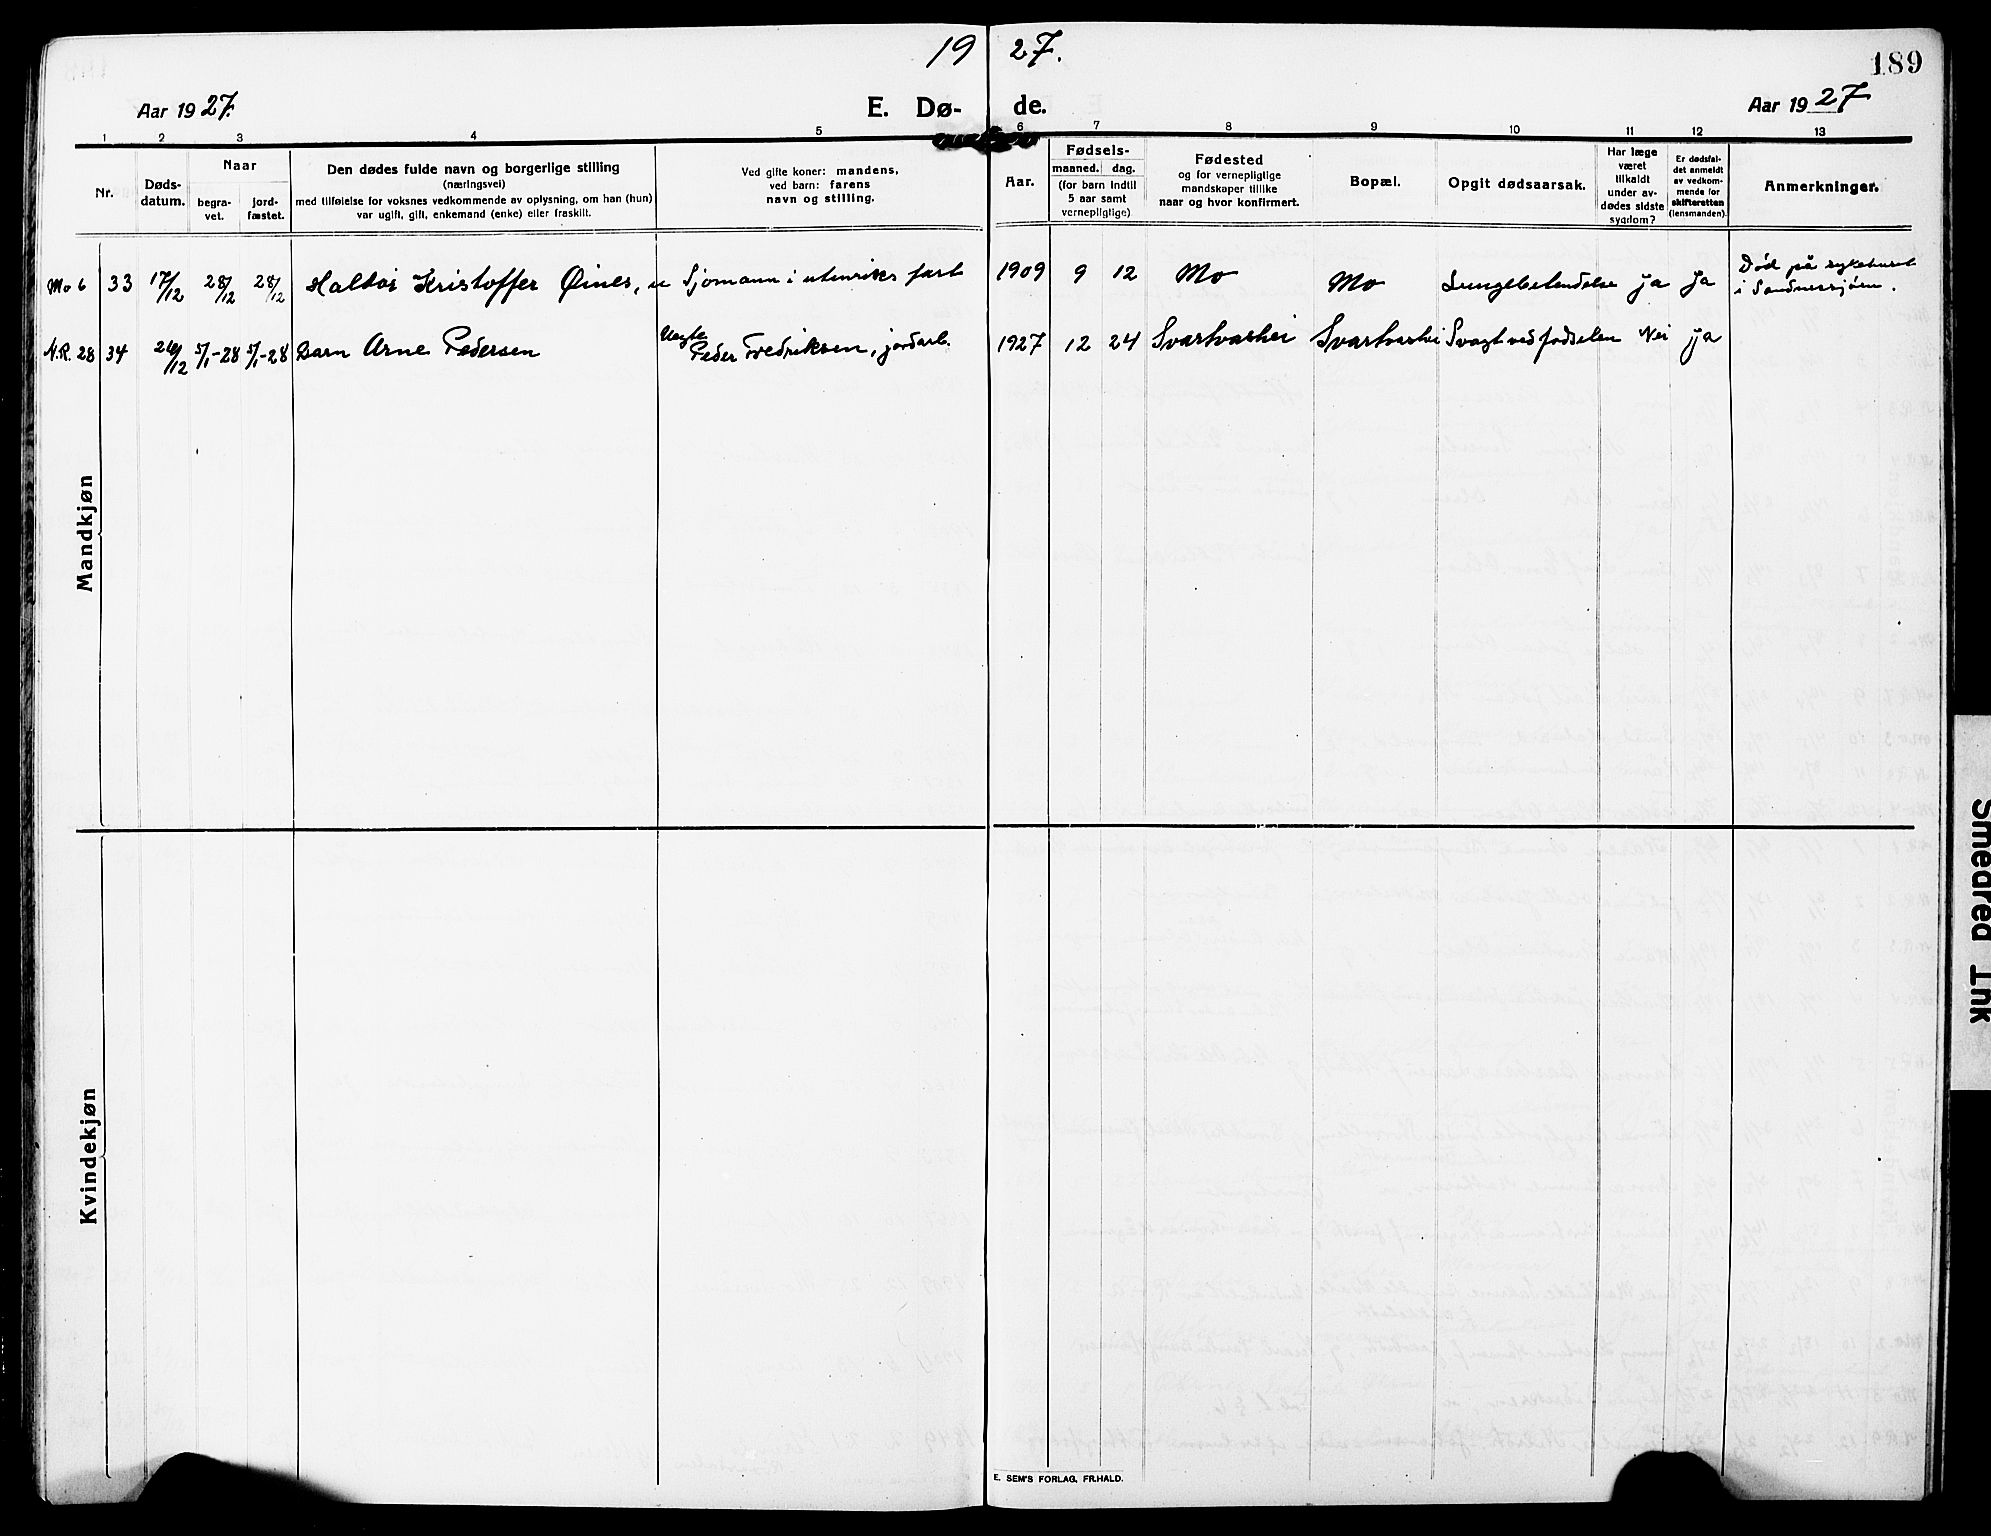 19 27.
189
Aar 1927.
E. Dø- de.
Aar 1927
1 2 3 4 5 6 7 8 9 10 11 12 13
Nr.
Døds-
datum.
Naar
begra-
vet.
jord-
fæstet.
Den dødes fulde navn og borgerlige stilling
(næringsvei)
med tilføielse for voksnes vedkommende av oplysning, om han (hun)
var ugift, gift, enkemand (enke) eller fraskilt.
Ved gifte koner: mandens,
ved barn: farens
navn og stilling.
Aar.
Fødsels-
maaned. dag.
(for barn indtil
5 aar samt
vernepligtige)
Fødested
og for vernepligtige
mandskaper tillike
naar og hvor konfirmert.
Bopæl.
Opgit dødsaarsak.
Har læge
været
tilkaldt
under av-
dødes sidste
sygdom?
Er dødsfal-
det anmeldt
av vedkom-
mende for
skifteretten
(lensmanden).
Anmerkninger.
Mo 6 33 17/12 28/12 28/12 Haldor Kristoffer Øines, u Sjømann i utenriks fart 1909 9 12 Mo Mo Lungebetendelse ja ja Død på sykehuset
i Sandnessjøen.
N.R. 28 34 26/12 5/1-28 5/1-28 Barn Arne Pedersen Uegte
Peder Fredriksen, jordarb. 1927 12 24 Svartvashei Svartvashei Svagt ved fødselen Nei ja
Mandkjøn
Kvindekjøn
E. SEM'S FORLAG, FR.HALD.
Smeared Ink